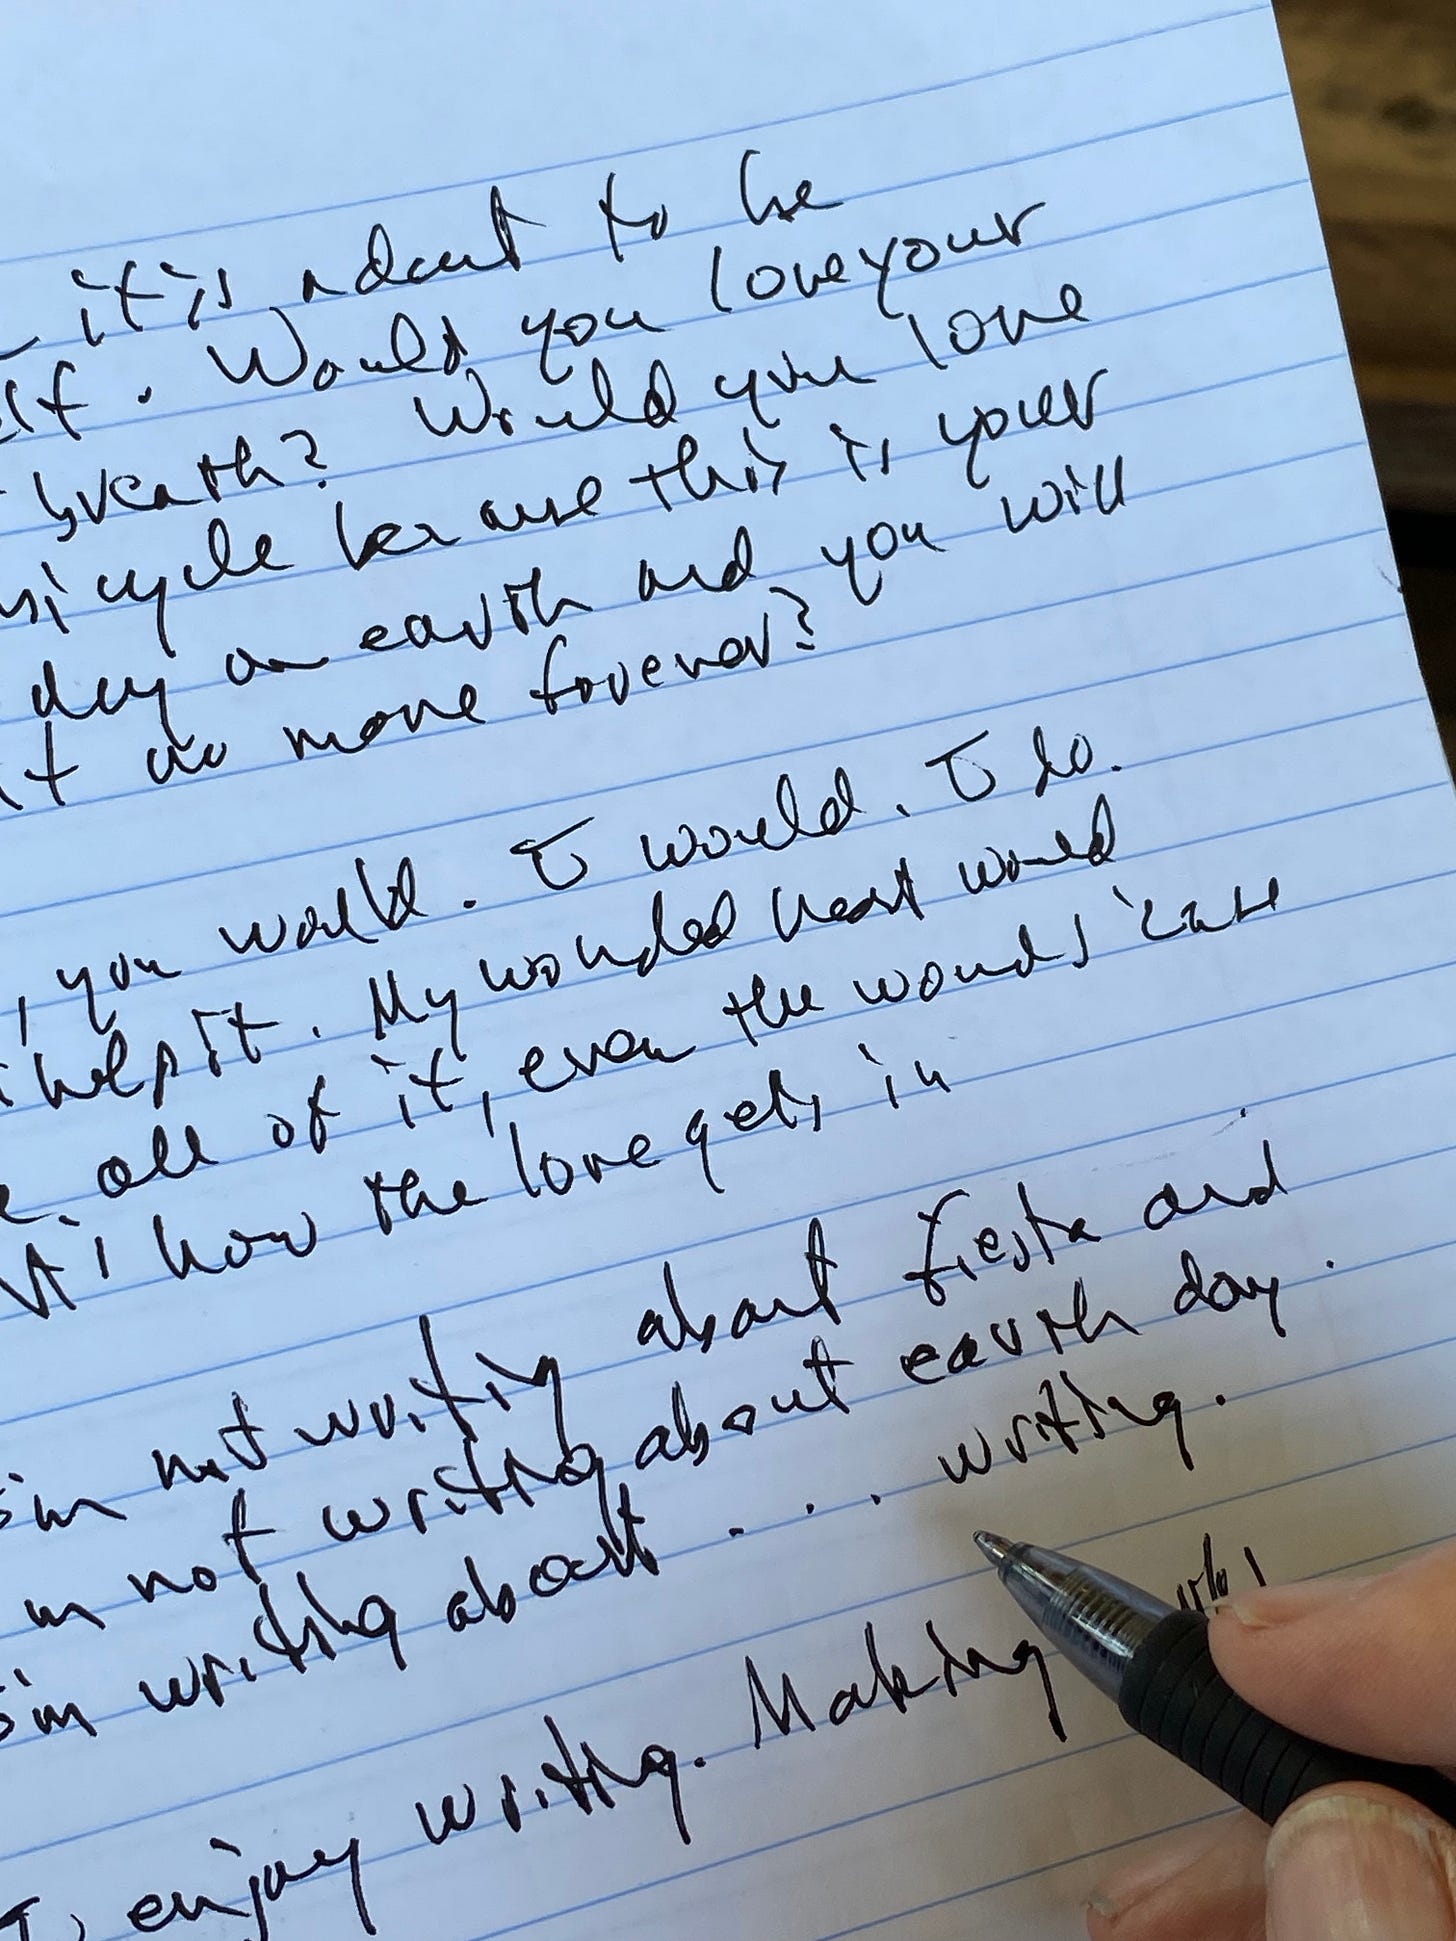 it is to be
. Would you love your
breath? Would you love
cycle because this is your
day on earth and you will
no more forever?
, you would. I would. I do.
help it. My wonded heart would
all of it, even the wounds 'cause
how the love gets in
I'm not writing about fiesta and
I'm not writing about earth day.
I'm writing about . . . writing.
I enjoy writing. Making